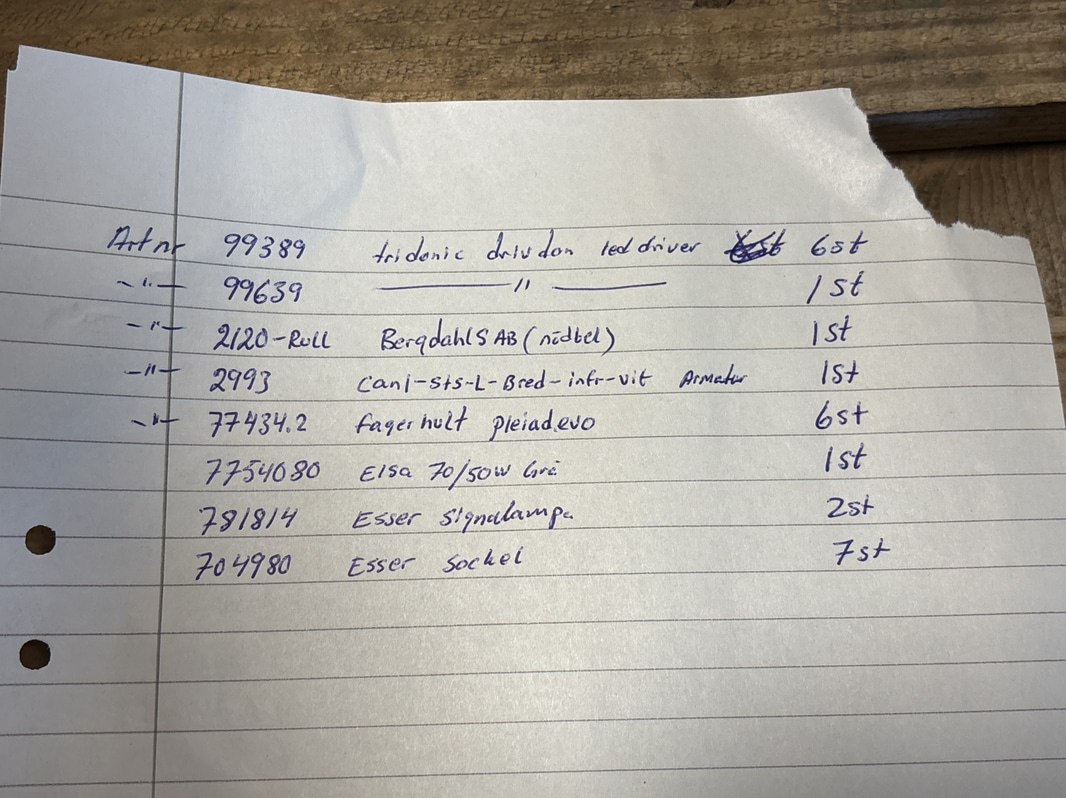 Art nr 99389 tridonic drivdon led driver 6st
-"- 99639 -"- 1st
-"- 2120-Roll Bergdahls AB (nödbel)
1st
-"- 2993 Cani-Sts-L-Bred-infr-vit Armatur 1st
-"- 77434.2 fagerhult pleiad.evo 6st
7754080 Elsa 70/50W Grå 1st
781814 Esser Signalampa 2st
704980 Esser Sockel 7st